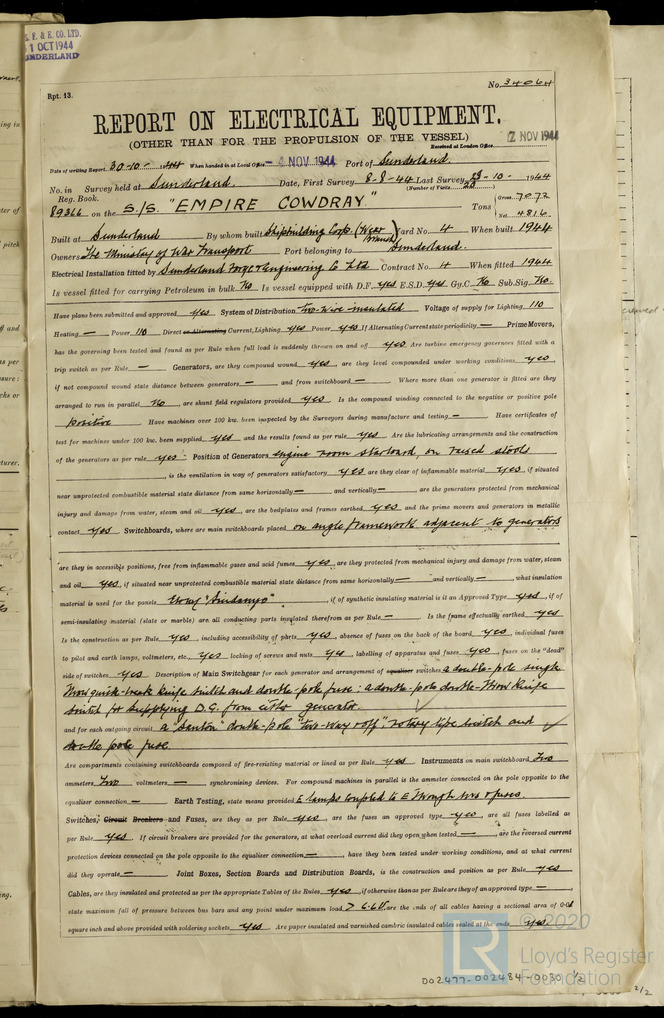 S. F. & E. CO. LTD.
1 OCT 1944
SUNDERLAND
Rpt. 13.
No. 34064
REPORT ON ELECTRICAL EQUIPMENT.
(OTHER THAN FOR THE PROPULSION OF THE VESSEL)
Received at London Office
2 NOV 1944
Date of writing Report 30-10- 1944 When handed in at Local Office - 4 NOV 1944 Port of Sunderland.
No. in Survey held at Sunderland. Date, First Survey 8-8-44 Last Survey -10- 1944
Reg. Book. (Number of Visits 20)
89366 on the S./S. "EMPIRE COWDRAY." Tons Gross 7072
Net 4816
Built at Sunderland By whom built Shipbuilding Corp. (Wear Branch) Yard No. 4 When built 1944
Owners The Ministry of War Transport Port belonging to Sunderland.
Electrical Installation fitted by Sunderland Forge & Engineering Co Ltd Contract No. 4 When fitted 1944
Is vessel fitted for carrying Petroleum in bulk No Is vessel equipped with D.F. yes E.S.D. yes Gy.C. No Sub.Sig. No.
Have plans been submitted and approved yes System of Distribution two-wire insulated Voltage of supply for Lighting 110
Heating — Power 110 Direct or Alternating Current, Lighting yes Power yes If Alternating Current state periodicity — Prime Movers,
has the governing been tested and found as per Rule when full load is suddenly thrown on and off yes Are turbine emergency governors fitted with a
trip switch as per Rule — Generators, are they compound wound yes, are they level compounded under working conditions yes
if not compound wound state distance between generators — and from switchboard — Where more than one generator is fitted are they
arranged to run in parallel No, are shunt field regulators provided yes Is the compound winding connected to the negative or positive pole
positive Have machines over 100 kw. been inspected by the Surveyors during manufacture and testing — Have certificates of
test for machines under 100 kw. been supplied yes and the results found as per rule yes Are the lubricating arrangements and the construction
of the generators as per rule yes Position of Generators engine room starboard, on raised stools
, is the ventilation in way of generators satisfactory yes are they clear of inflammable material yes, if situated
near unprotected combustible material state distance from same horizontally — and vertically —, are the generators protected from mechanical
injury and damage from water, steam and oil yes, are the bedplates and frames earthed yes and the prime movers and generators in metallic
contact yes Switchboards, where are main switchboards placed on angle framework adjacent to generators
are they in accessible positions, free from inflammable gases and acid fumes yes, are they protected from mechanical injury and damage from water, steam
and oil yes, if situated near unprotected combustible material state distance from same horizontally — and vertically —, what insulation
material is used for the panels Ebony "Sindanyo", if of synthetic insulating material is it an Approved Type yes, if of
semi-insulating material (slate or marble) are all conducting parts insulated therefrom as per Rule — Is the frame effectually earthed yes
Is the construction as per Rule yes, including accessibility of parts yes, absence of fuses on the back of the board yes, individual fuses
to pilot and earth lamps, voltmeters, etc., yes locking of screws and nuts yes, labelling of apparatus and fuses yes, fuses on the "dead"
side of switches yes Description of Main Switchgear for each generator and arrangement of equaliser switches a double-pole single
throw quick-break knife switch and double-pole fuse: a double-pole double-throw knife
switch for supplying D.G. from either generator.
and for each outgoing circuit a "Santon" double-pole "two-way & off", rotary type switch and
double pole fuse.
Are compartments containing switchboards composed of fire-resisting material or lined as per Rule yes Instruments on main switchboard two
ammeters two voltmeters — synchronising devices. For compound machines in parallel is the ammeter connected on the pole opposite to the
equaliser connection — Earth Testing, state means provided E lamps coupled to E through sws & fuses
Switches, Circuit Breakers and Fuses, are they as per Rule yes, are the fuses an approved type yes, are all fuses labelled as
per Rule yes If circuit breakers are provided for the generators, at what overload current did they open when tested —, are the reversed current
protection devices connected on the pole opposite to the equaliser connection —, have they been tested under working conditions, and at what current
did they operate — Joint Boxes, Section Boards and Distribution Boards, is the construction and position as per Rule yes
Cables, are they insulated and protected as per the appropriate Tables of the Rules yes, if otherwise than as per Rule are they of an approved type —,
state maximum fall of pressure between bus bars and any point under maximum load > 6.6V. are the ends of all cables having a sectional area of 0.01
square inch and above provided with soldering sockets yes Are paper insulated and varnished cambric insulated cables sealed at the ends yes.
© 2020
LR
Lloyd's Register
Foundation
002477-002484-0030 1/2
2/2